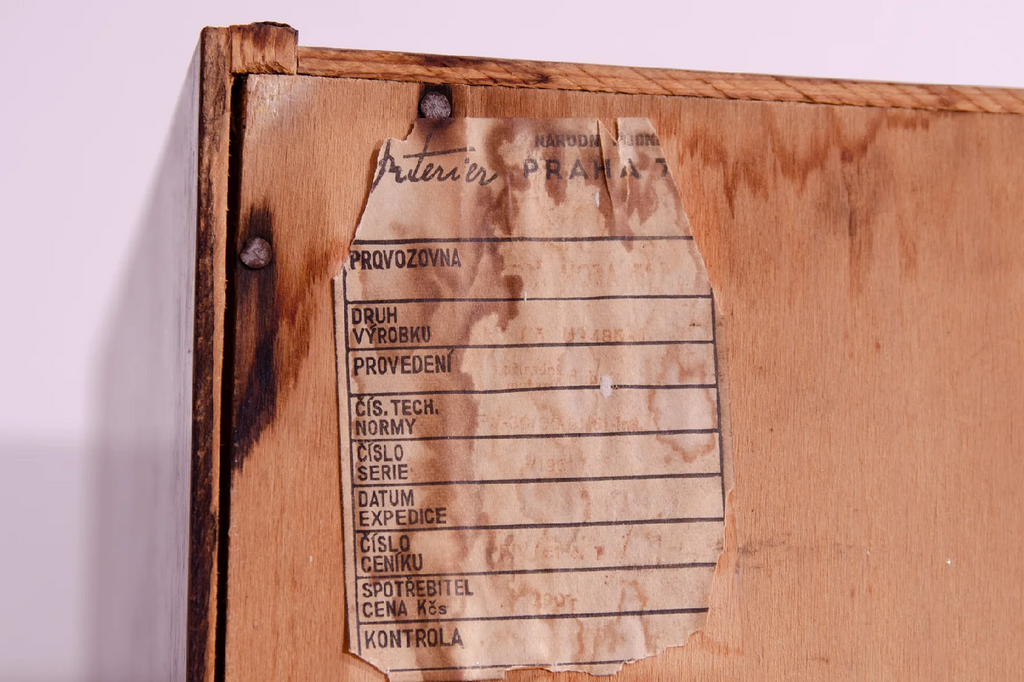 Interier NÁRODNÍ
PRAHA 7
PROVOZOVNA
DRUH
VÝROBKU
PROVEDENÍ
ČÍS. TECH.
NORMY
ČÍSLO
SERIE
DATUM
EXPEDICE
ČÍSLO
CENÍKU
SPOTŘEBITEL
CENA Kčs
KONTROLA